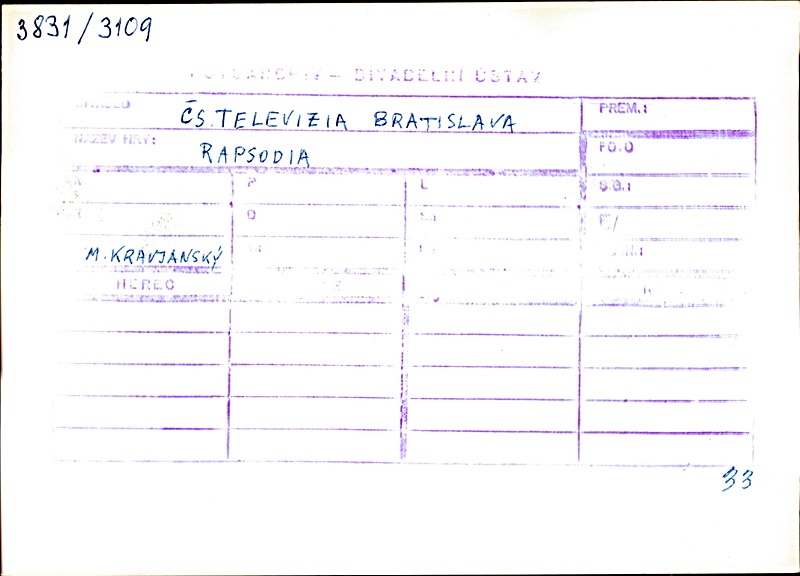 3831/3109
DIVADELNÍ ÚSTAV
ČS. TELEVIZIA BRATISLAVA
PREM.:
NÁZEV HRY:
RAPSODIA
FO.O
P
L
S.G.:
O
M. KRAVJANSKÝ
HEREC
33